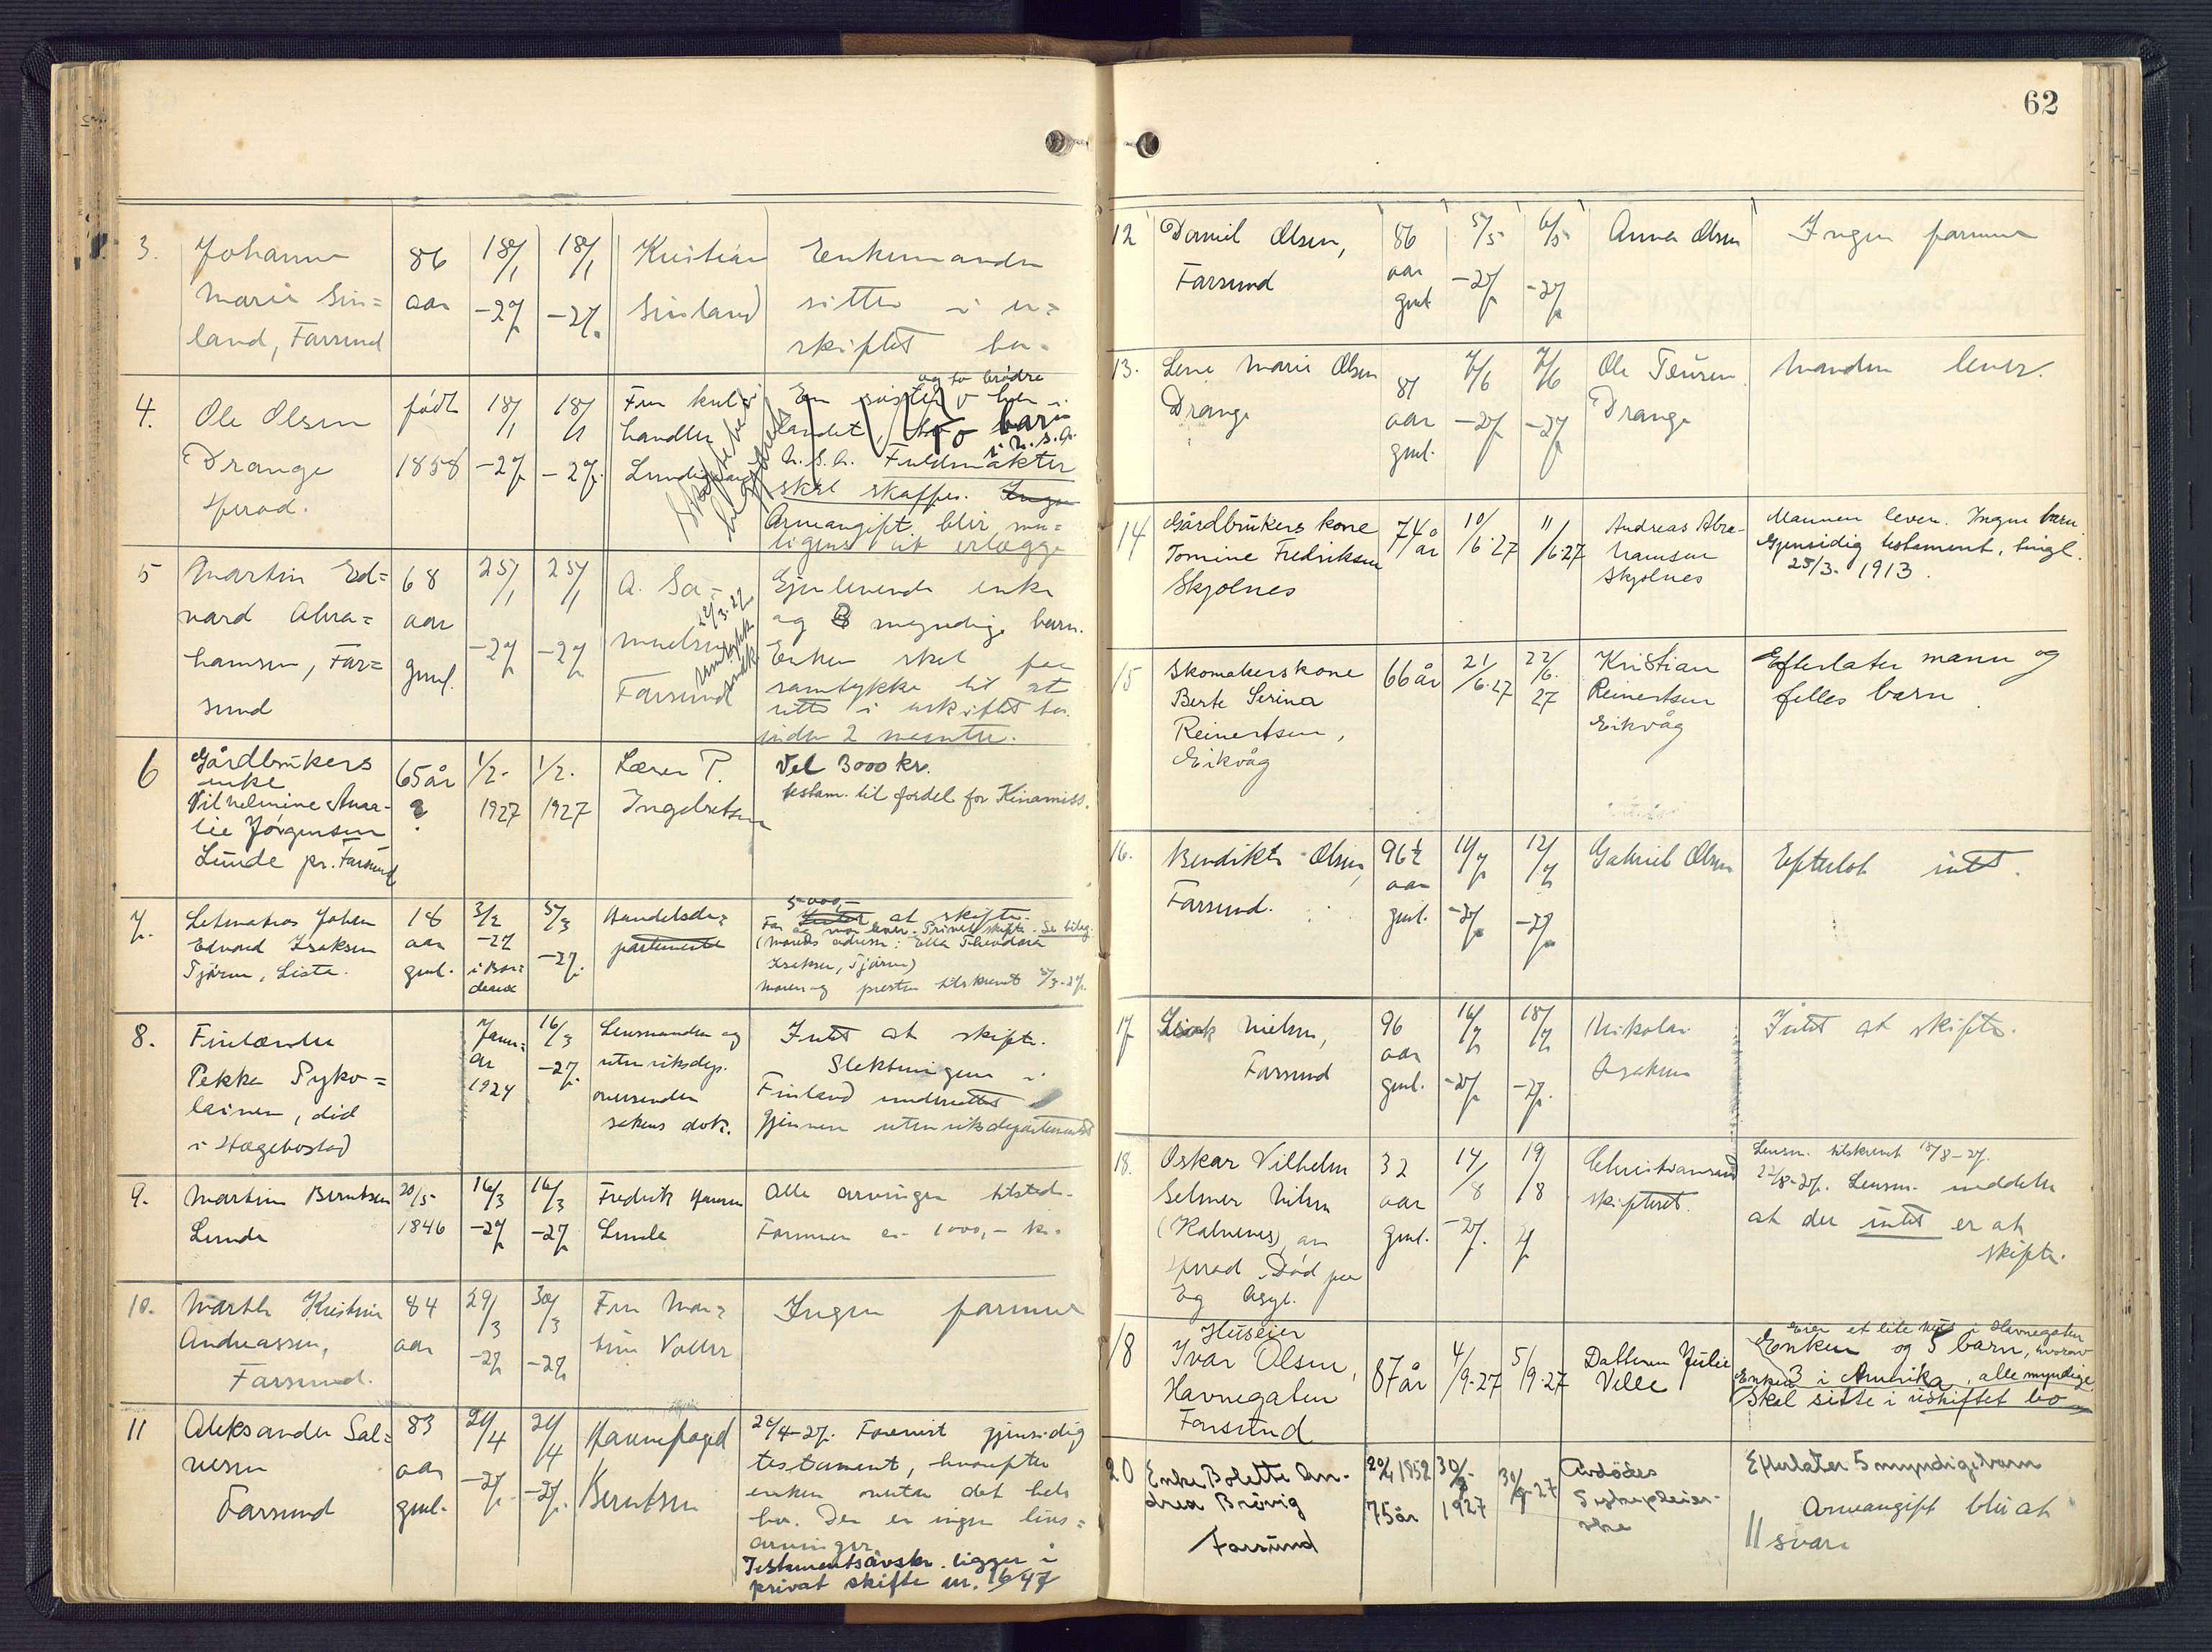 62
3.
Johanne
Marie Sin=
land, Farsund
86
aar
18/1
-27
18/1
-27.
Kristian
Sinland
Enkemanden
sitter i u=
skiftet bo.
4.
Ole Olsen
Drange
Herad.
født
1858
18/1
-27
18/1
-27.
Fru kul=
handler
og to brødre
En søster
landet, barn
i U. S. A.
U. S. A. Fuldmakter
skal skaffes. Ingen
Arveavgift blir mu=
ligens at erlægge
5
Martin Ed=
vard Abra=
hamsen, Far=
sund
68
aar
gml.
25/1
-27
25/1
-27
A. Sa=
muelsen
Farsund
Gjenlevende enke
og 8 myndige barn.
Enken skal faa
samtykke til at
sitte i uskiftet bo
inden 2 maaneder.
6
Gårdbrukers
enke
Vilhelmine Ama-
lie Jörgensen
Lunde pr. Farsund
65 år
?
1/2-
1927
1/2.
1927
Lærer P.
Ingebretsen
Vel 3000 kr.
testam. til fordel for Kinamiss.
7.
Letmatros Johan
Edvard Isaksen
Tjörve, Lista.
18
aar
gml.
3/2
-27
i Bor=
deaux
5/3
-27.
Handelsde=
partementet
5000,-
Intet at skifte.
Far og mor lever. Privat skifte. Se bilag.
(Morens adresse: Ella Theodora
Isaksen, Tjörve)
Moren og presten tilskrevet 5/3-27.
8.
Finlænder
Pekka Pyko=
lainen, död
i Hægebostad
Janu=
ar
1924
16/3
-27.
Lensmanden og
utenriksdep.
oversender
sakens dok.
Intet at skifte.
Slektningene i
Finland underrettet
gjennem utenriksdepartementet
9.
Martin Berntsen
Lunde
20/5-
1846
16/3
-27
16/3
-27
Fredrik Hansen
Lunde
Alle arvinger tilstede.
Formuen er 1000,- kr.
10.
Marthe Kristine
Andreassen,
Farsund.
84
aar
29/3
-27
30/3
-27
Fru Mar=
tine Voller
Ingen formue
11
Aleksander Sal=
vesen
Farsund
83
aar
gml.
24/4
-27.
24/4
-27.
Havnefoged
Berntsen
26/4-27. Forevist gjensidig
testament, hvorefter
enken overtar det hele
bo. Der er ingen livs=
arvinger.
Testamentsavskr. ligger i
privat skifte nr. 16/47
12
Daniel Olsen,
Farsund
86
aar
gml
5/5
-27
6/5
-27
Anna Olsen
Ingen formue
13.
Lene Marie Olsen
Drange
81
aar
gml.
7/6
-27
7/6
-27
Ole
Drange
Manden lever.
14
Gårdbrukers kone
Tomine Fredriksen
Skjolnes
74 år
10/6.27
11/6.27
Andreas Abra-
hamsen
Skjolnes
Mannen lever. Ingen barn
Gjensidig testament, tingl.
25/3. 1913.
15
Skomakerskone
Berte Serina
Reinertsen,
Eikvåg
66 år
21/6.27
22/6.
27
Kristian
Reinertsen
Eikvåg
Efterlater mann og
felles barn.
16.
Bendikte Olsen,
Farsund.
96½
aar
gml.
11/7
-27
12/7
-27.
Gabriel Olsen
Efterlot intet.
17
Isak Nielsen,
Farsund
96
aar
gml.
16/7
-27
18/7
-27.
Nikolai
Isaksen
Intet at skifte.
18.
Oskar Vilhelm
Selmer Nilsen
(Kalvenes), av
Herad. Død paa
Eg Asyl.
32
aar
gml.
14/8
-27.
19/8
27
Christianssand
skifteret.
Lensm. tilskrevet 18/8-27.
22/8-27. Lensm. meddeler
at der intet er at
skifte.
18
Huseier
Ivar Olsen,
Havnegaten
Farsund
87 år
4/9-27
5/9.27
Datteren Julie
Velle
Eier et lite hus i Havnegaten
Enken og 5 barn, hvorav
3 i Amerika, alle myndige.
Enken
Skal sitte i uskiftet bo
20
Enke Bolette An-
drea Brövig
Farsund
20/4 1852
75 år
30/9-
1927
30/9-27
Avdödes
Sykepleier-
ske
Efterlater 5 myndige barn
Arveavgift blir at
svare